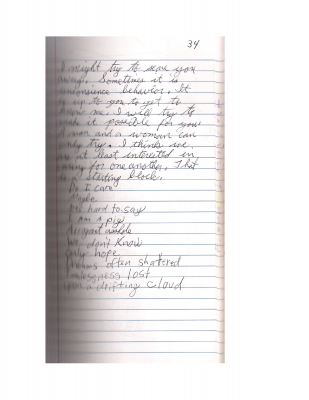 34
I might try to scare you
away. Sometimes it is
behavior. It
is up to you to get to
know me. I will try to
make it possible for you
man and a woman can
only try. I think we
are at least interested in
for one another. That
is a starting block.
Do I care
Maybe
hard to say
I am a pig
don't know
Only hope
Dreams often shattered
lost
Upon a drifting cloud